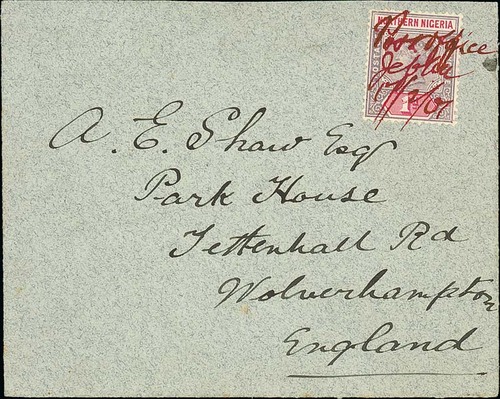 NORTHERN NIGERIA
Post Office
Jebba
POSTAGE
1d
A. E. Shaw Esq
Park House
Tettenhall Rd
Wolverhampton
England